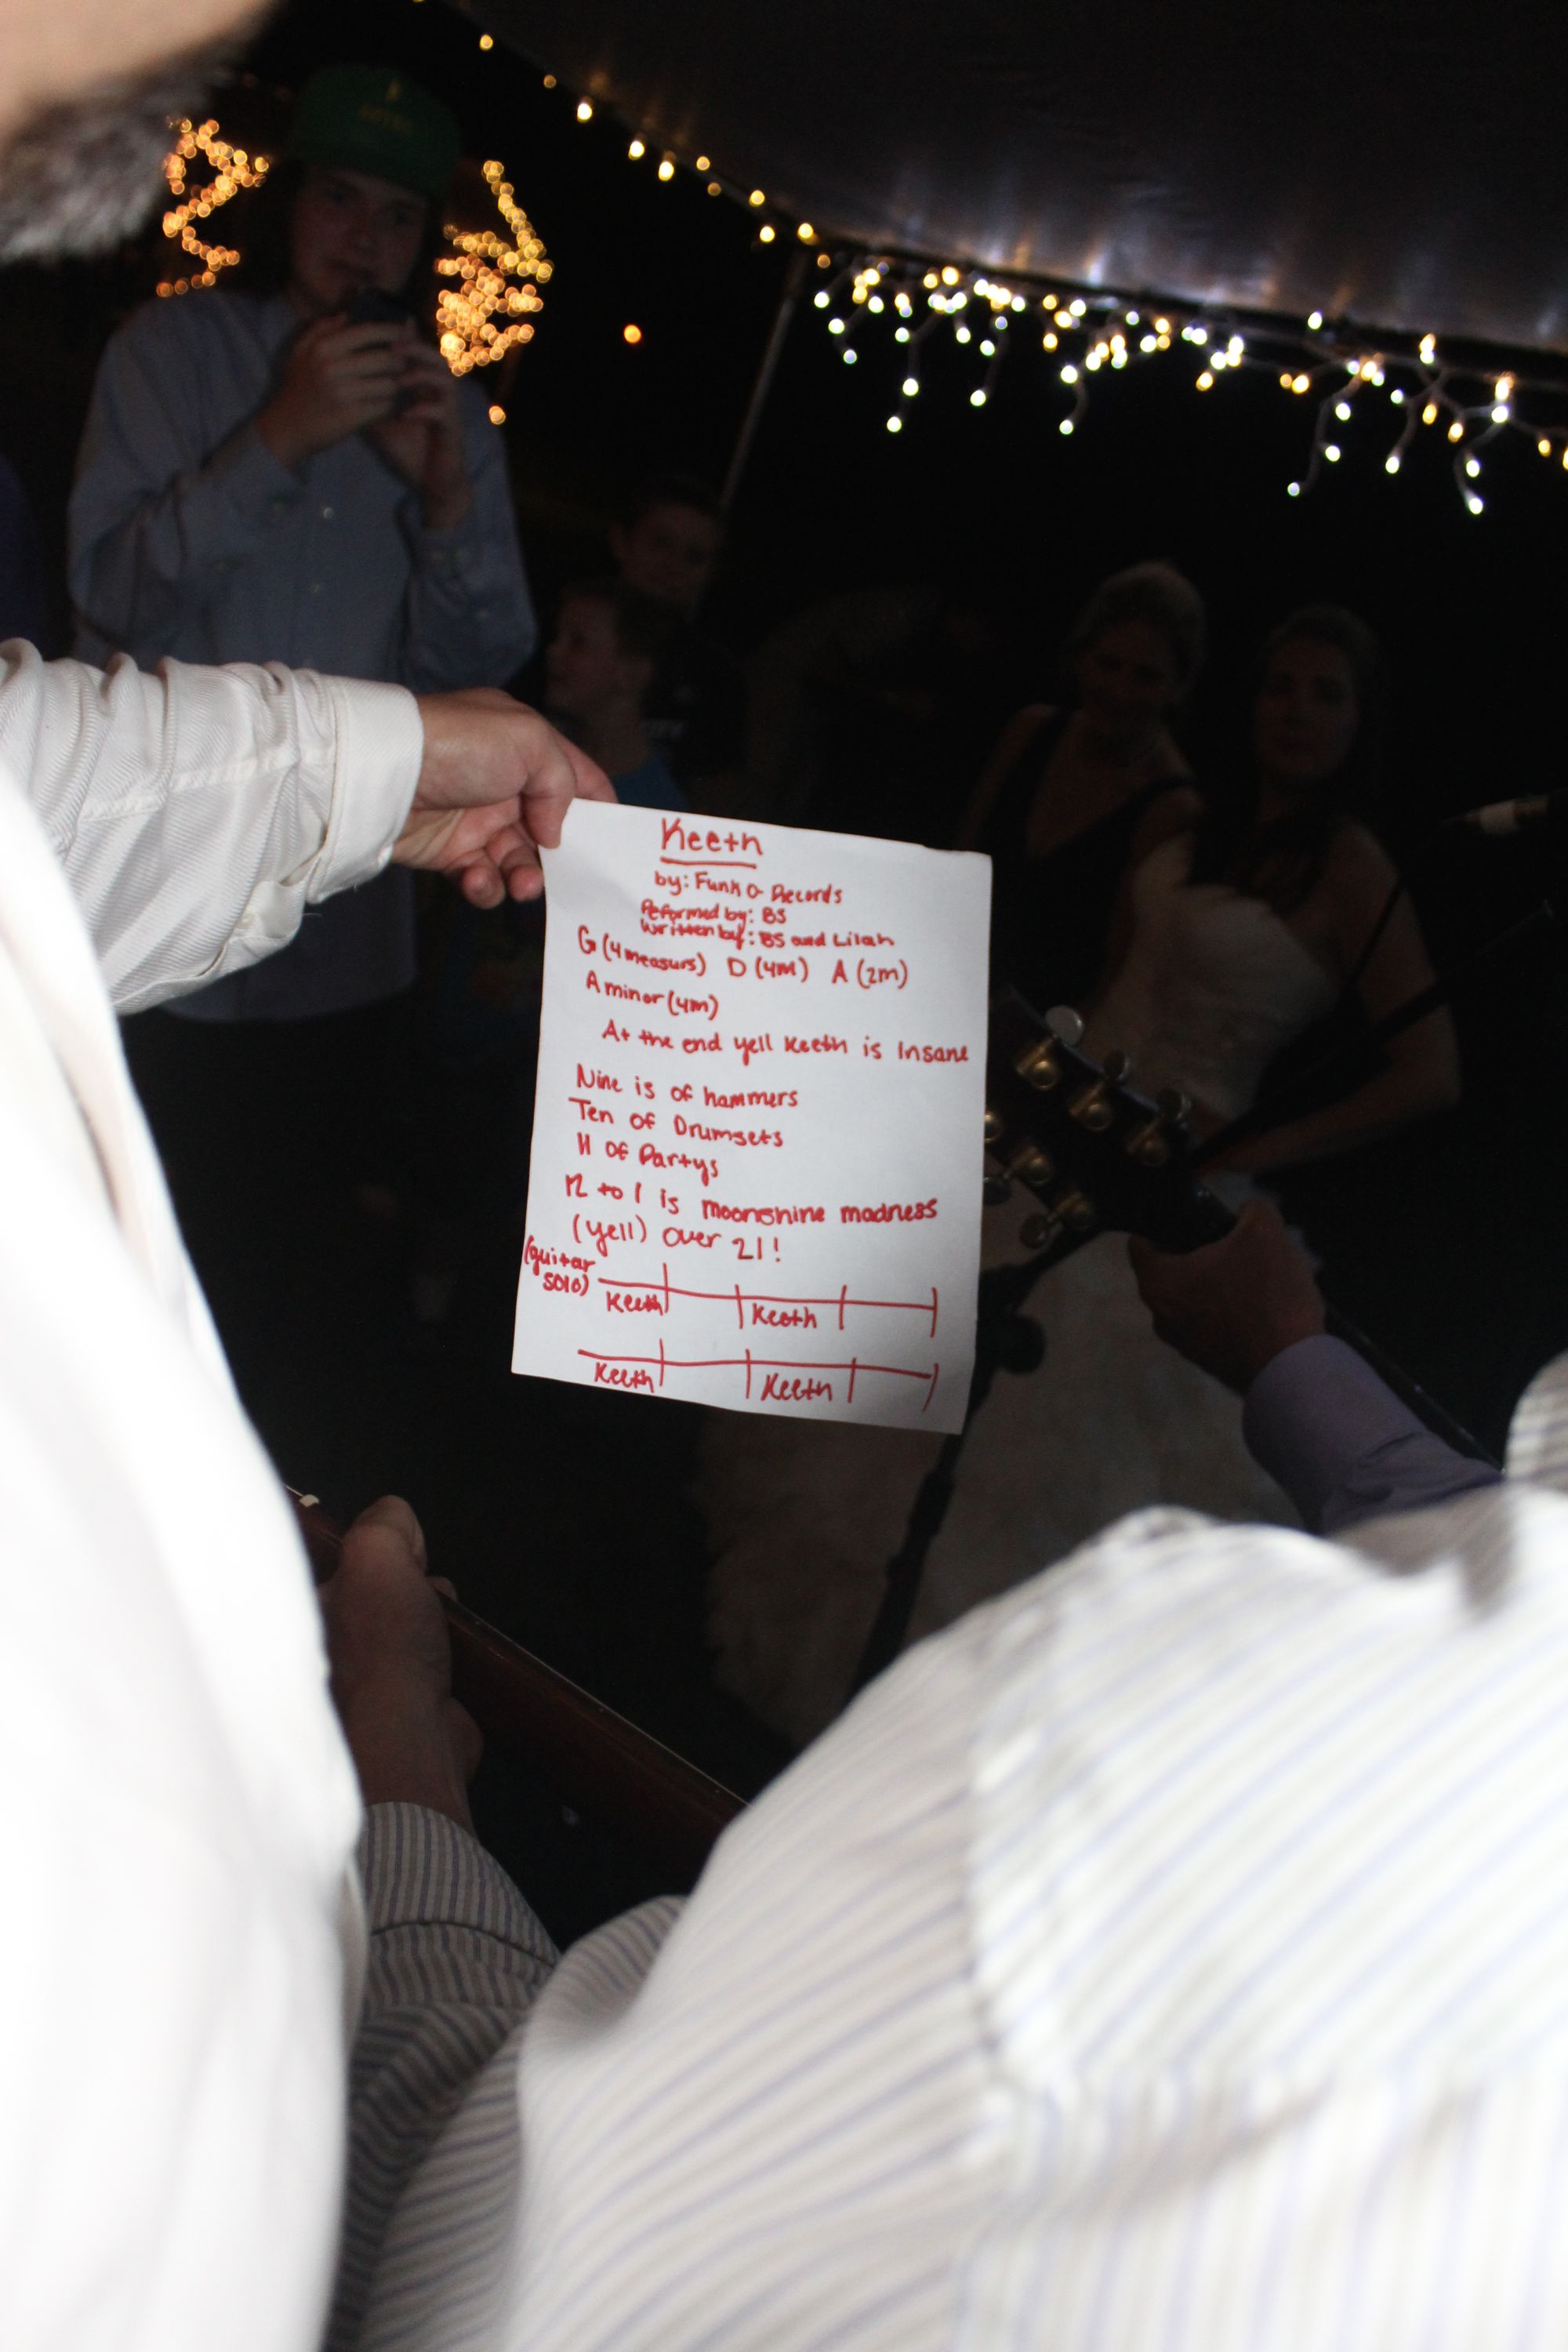 Keeth
by: Funk O Records
Performed by: BS
Written by: BS and Lilah
G (4 measurs) D (4m) A (2m)
A minor (4m)
At the end yell Keeth is Insane
Nine is of hammers
Ten of Drumsets
11 of Partys
12 to 1 is moonshine madness
(yell) over 21!
(guitar solo)
Keeth Keeth
Keeth Keeth